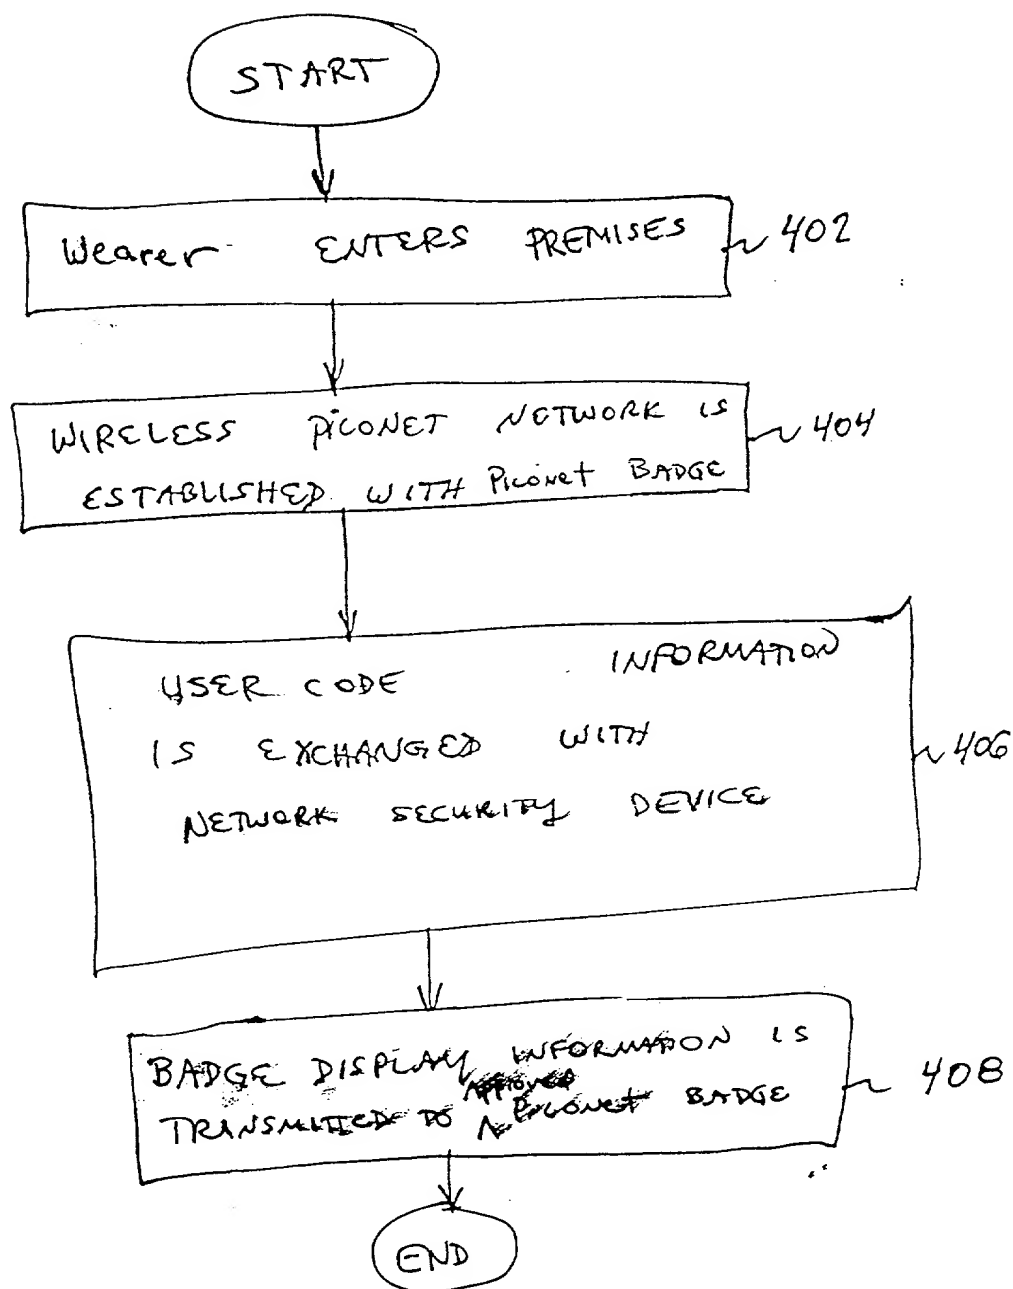 START
Wearer ENTERS PREMISES
402
WIRELESS PICONET NETWORK IS
ESTABLISHED WITH Piconet BADGE
404
USER CODE INFORMATION
IS EXCHANGED WITH
NETWORK SECURITY DEVICE
406
BADGE DISPLAY INFORMATION IS
APPROVED
TRANSMITTED TO Piconet BADGE
408
END